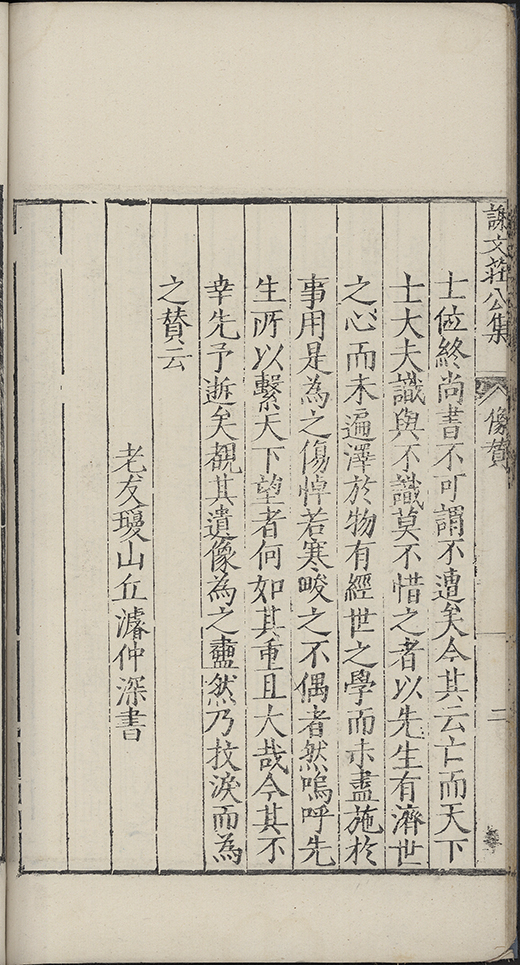 謝文莊公集
像贊
二
士位終尚書不可謂不遭矣今其云亡而天下
士大夫識與不識莫不惜之者以先生有濟世
之心而未遍澤於物有經世之學而未盡施於
事用是為之傷悼若寒畯之不偶者然嗚呼先
生所以繫天下望者何如其重且大哉今其不
幸先予逝矣覩其遺像為之衋然乃抆淚而為
之贊云
老友瓊山丘濬仲深書